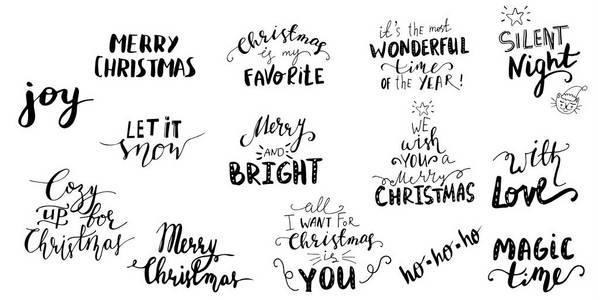 MERRY
CHRISTMAS
Christmas
is my
FAVORITE
it's the most
WONDERFUL
time
OF THE YEAR!
SILENT
Night
joy
LET IT
snow
Merry
AND
BRIGHT
WE
wish
YOU a
Merry
CHRISTMAS
with
LOVE
Cozy
up for
Christmas
Merry
Christmas
all
I WANT FOR
Christmas
is
YOU
ho-ho-ho
MAGIC
time